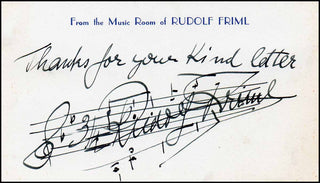 From the Music Room of RUDOLF FRIML
Thanks for your Kind letter
Rudolf Friml